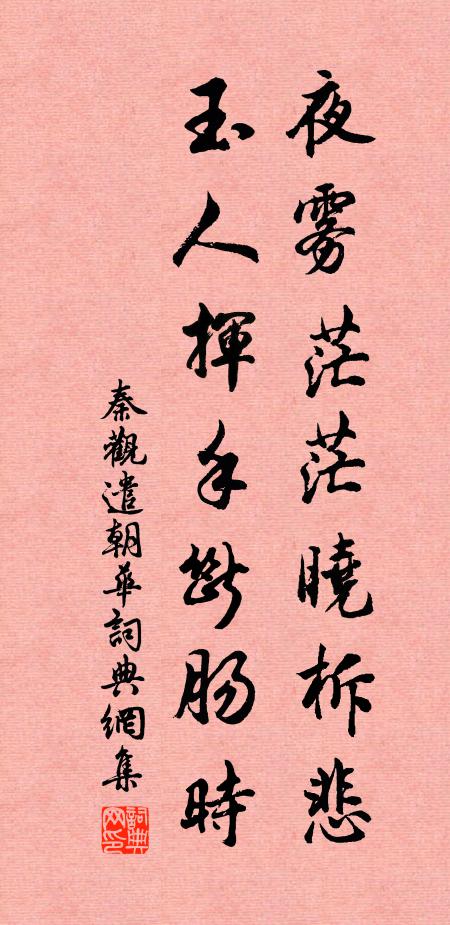 夜雾茫茫曉柝悲
玉人揮手斷肠時
秦觀遣朝華詞典網集
詞典網印